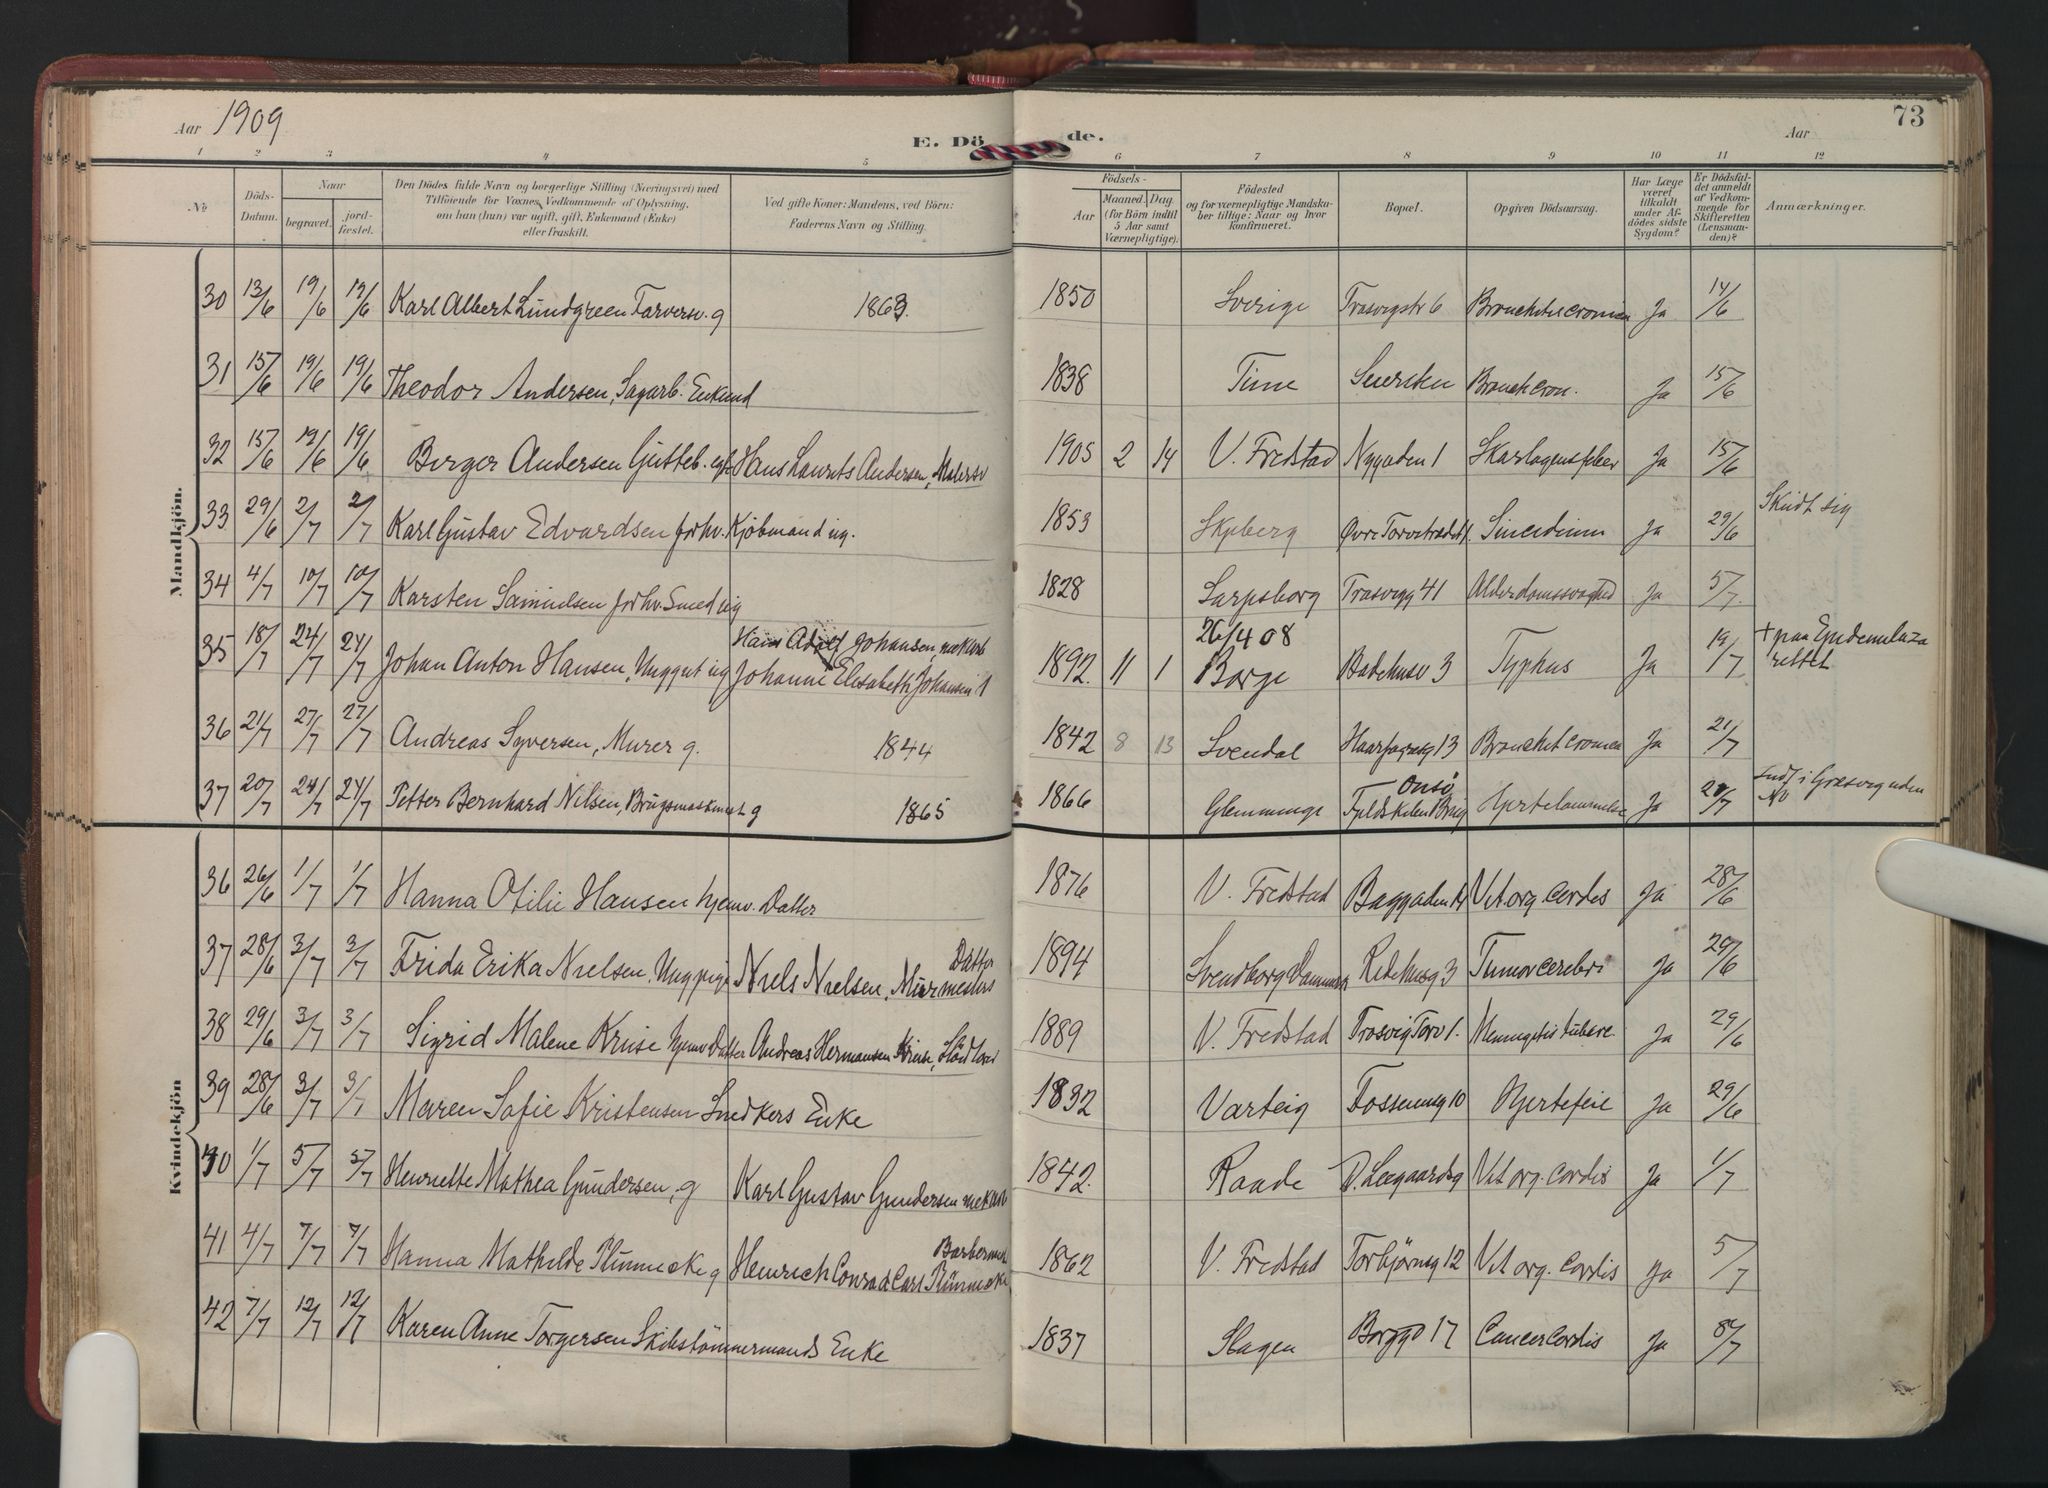 Aar 1909
E. Dö de.
Aar
73
1 2 3 4 5 6 7 8 9 10 11 12
No
Döds-Datum.
Naar
begravet.
jord-fæstet.
Den Dödes fulde Navn og borgerlige Stilling (Næringsvei) med
Tilföiende for Voxnes Vedkommende af Oplysning,
om han (hun) var ugift, gift, Enkemand (Enke)
eller fraskilt.
Ved gifte Koner: Mandens, ved Börn:
Faderens Navn og Stilling.
Födsels-
Aar
Maaned. Dag.
(for Börn indtil
5 Aar samt
Værnepligtige).
Födested
og for værnepligtige Mandska-
ber tillige: Naar og hvor
konfirmeret.
Bopæl.
Opgiven Dödsaarsag.
Har Læge
været
tilkaldt
under Af-
dödes sidste
Sygdom?
Er Dödsfal-
det anmeldt
af Vedkom-
mende for
Skifteretten
(Lensman-
den)?
Anmærkninger.
Mandkjön.
30 13/6 19/6 19/6 Karl Albert Lundgreen Farversv. g 1863. 1850 Sverige Trosvigstr 6 Ja 14/6
31 15/6 19/6 19/6 Theodor Andersen, Sagarb. Enkmd 1838 Tune Bronch cron. Ja 15/6
32 15/6 19/6 19/6 Birger Andersen Gutteb. egt. Hans Laurits Andersen, Malersv 1905 2 14 V. Fredstad Nygaden 1 Skarlagensfeber Ja 15/6
33 29/6 2/7 2/7 Karl Gustav Edvardsen forhv. Kjöbmand ug. 1853 Skjeberg Ja 29/6 Skudt sig
34 4/7 10/7 10/7 Karsten Samuelsen forhv. Smed ug 1828 Sarpsborg Trosvigg 41 Alderdomssvaghed Ja 5/7.
35 18/7 24/7 24/7 Johan Anton Hansen, Unggut ug Hans Adolf Johansen, mek Arb
Johanne Elisabeth Johansen 1892. 11 1 26/4 08
Borge Badehusv 3 Typhus Ja 19/7 + paa Epidemilaza
rettet
36 21/7 27/7 27/7 Andreas Syversen, Murer g. 1844 1842 8 13 Svendal Haarfagresg 13 Ja 21/7
37 20/7 24/7 24/7 Petter Bernhard Nilsen, g 1865 1866 Glemminge Onsö
Ja 20/7
Kvindekjön
36 26/6 1/7 1/7 Hanna Otilie Hansen hjemv. Datter 1876 V. Fredstad Baggaden 14 Vit org. cordis Ja 28/6
37 28/6 3/7 3/7 Frida Erika Nielsen, Ungpige Niels Nielsen, Murmesters Datter 1894 Svendborg Danmark 3 Tumor cerebri Ja 29/6
38 29/6 3/7 3/7 Sigrid Malene Kruse hjemv Datter Andreas Hermansen Kruse, 1889 V. Fredstad Trosvig Torv 1. Ja 29/6
39 28/6 3/7 3/7 Maren Sofie Kristensen Snedkers Enke 1832 Varteig Fossumsg 10 Hjertefeil Ja 29/6
40 1/7 5/7 5/7 Henriette Mathea Gundersen, g Karl Gustav Gundersen mek Arb 1842. Raade Vit org. cordis Ja 1/7
41 4/7 7/7 7/7 Hanna Mathilde Plünnecke g Heinrich Conrad Carl Plünnecke 1862 V. Fredstad Torbjörnsg 12 Vit org. cordis Ja 5/7
42 7/7 12/7 12/7 Karen Anne Torgersen Skibstömmermands Enke 1837 Slagen Borgg 17 Cancer Cordis Ja 8/7